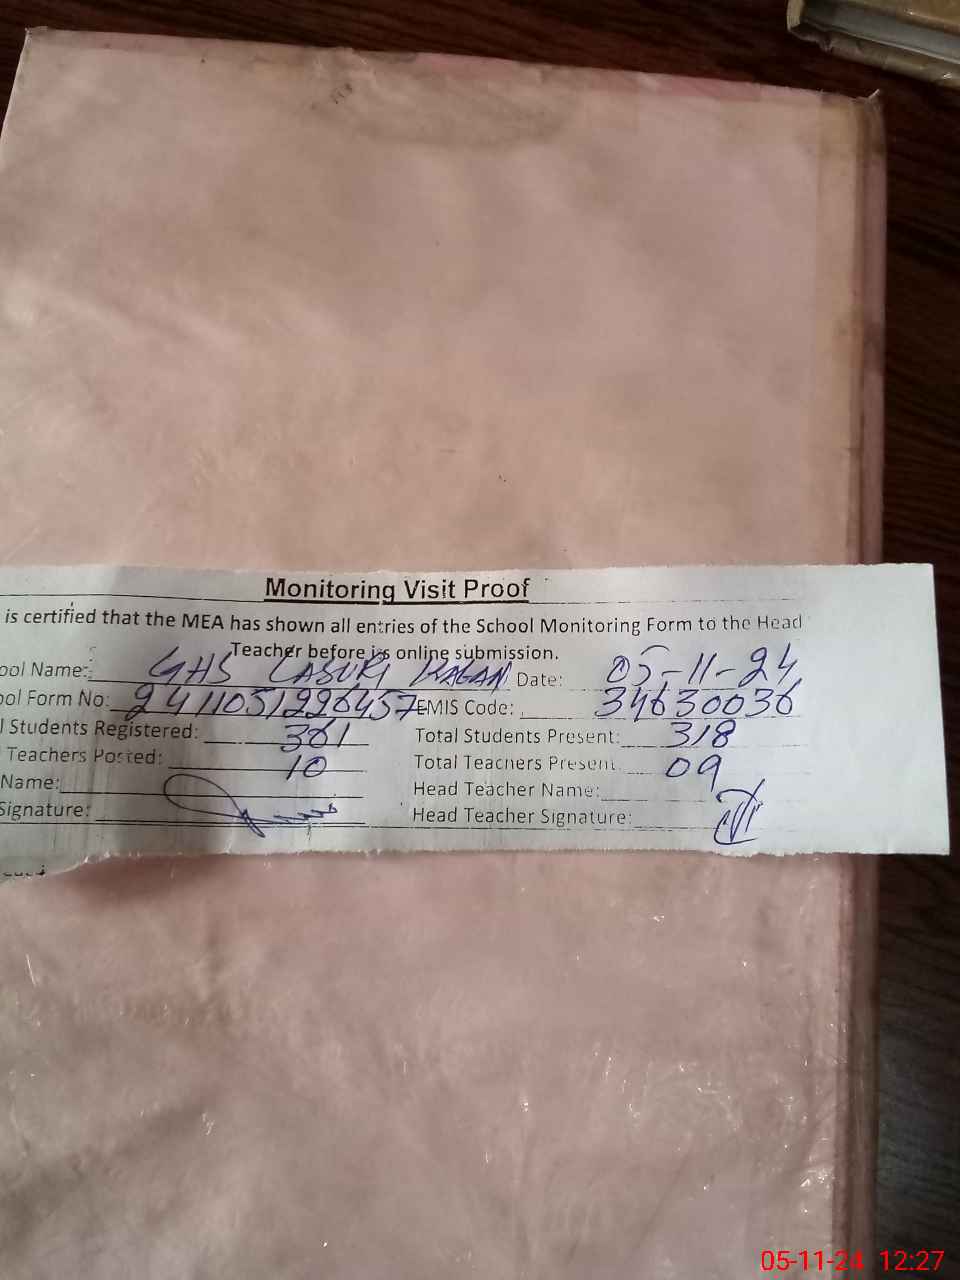 Monitoring Visit Proof
is certified that the MEA has shown all entries of the School Monitoring Form to the Head
Teacher before is online submission.
ool Name: GHS LASURI KALAN Date: 05-11-24
ool Form No: 2411051226457 EMIS Code: 34630036
l Students Registered: 361 Total Students Present: 318
Teachers Posted: 10 Total Teachers Present: 09
Name: Head Teacher Name:
Signature: Head Teacher Signature:
05-11-24 12:27